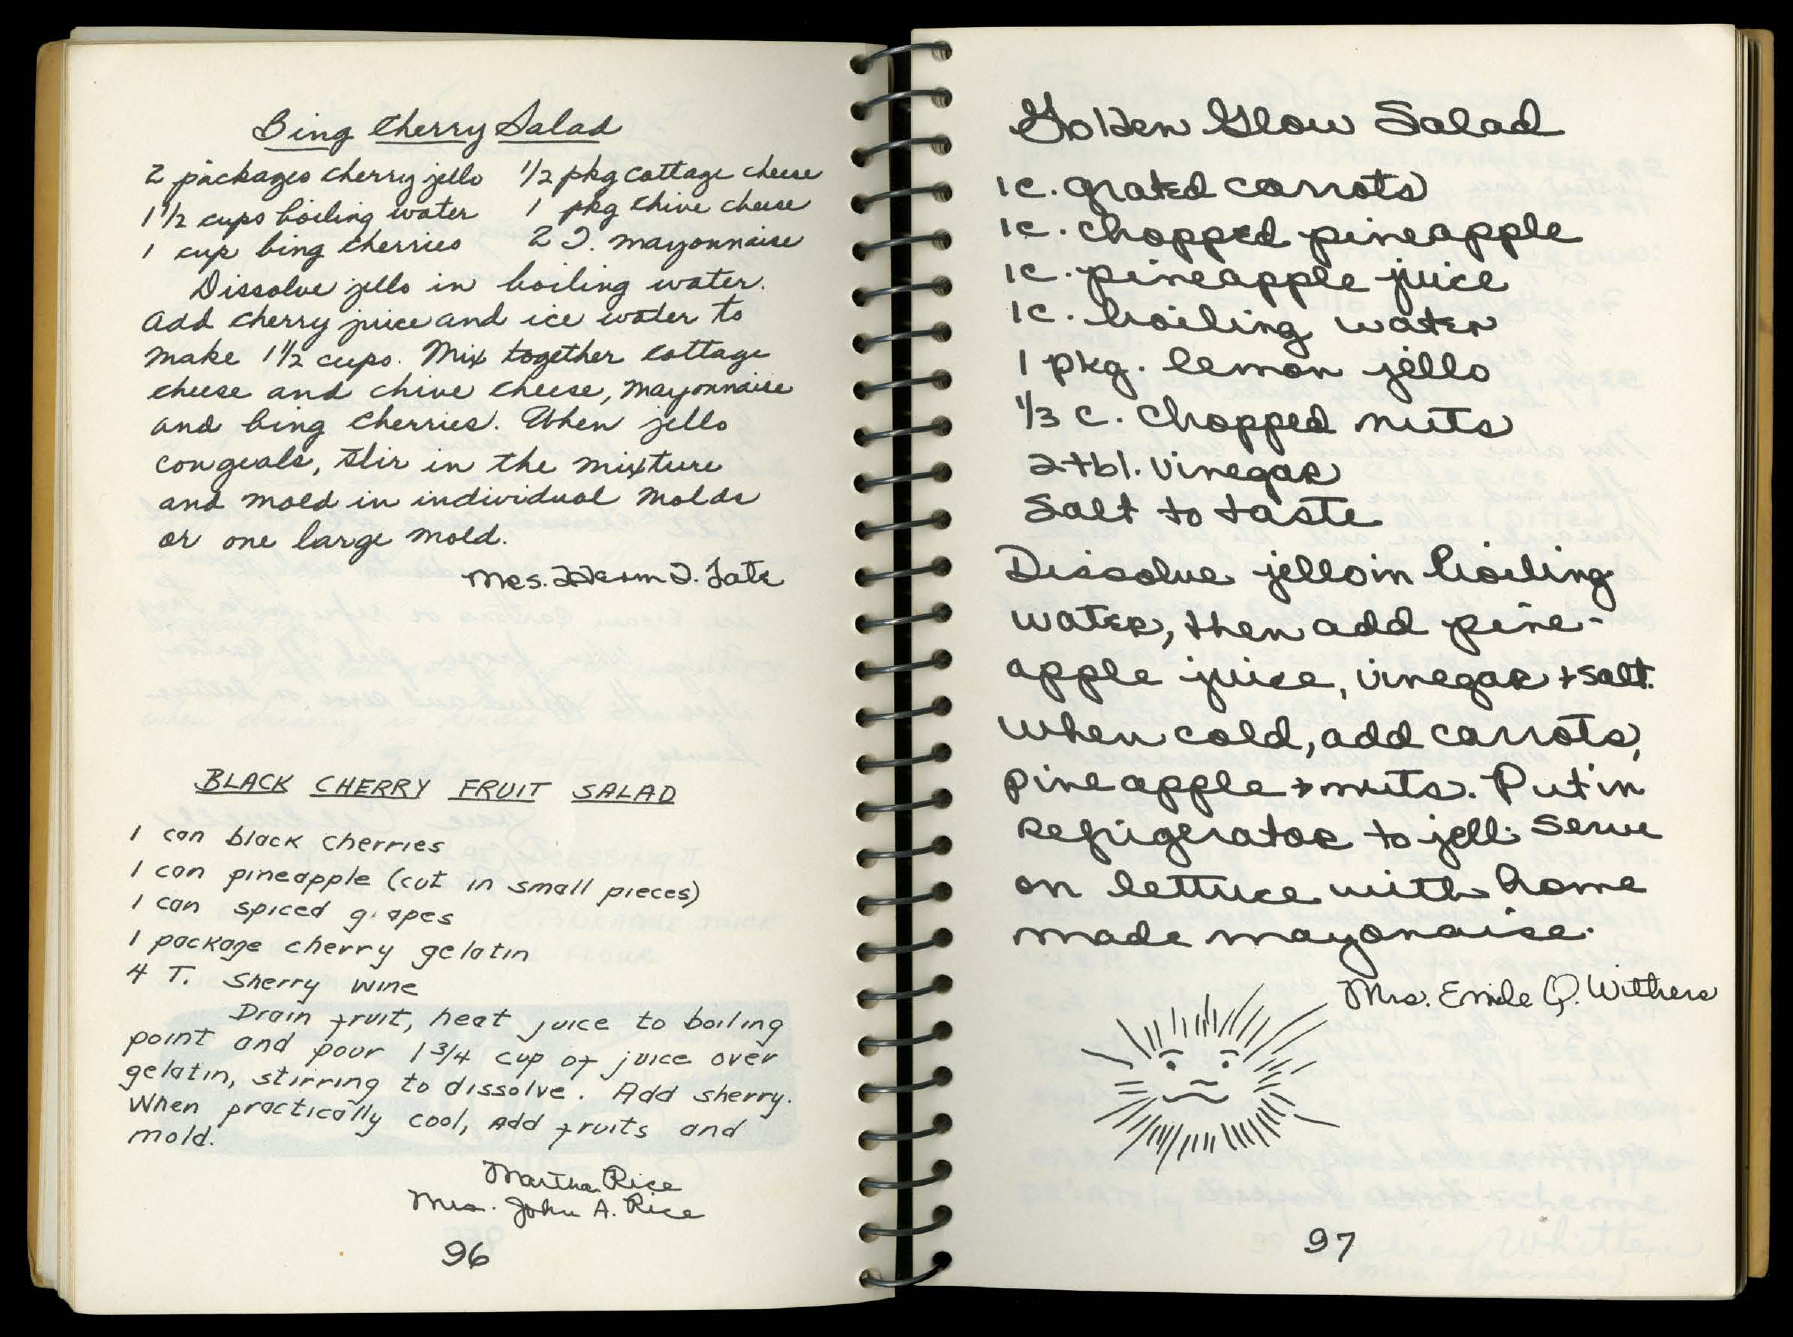 Bing Cherry Salad
2 packages cherry jello 1/2 pkg cottage cheese
1 1/2 cups boiling water 1 pkg chive cheese
1 cup bing cherries 2 T. mayonnaise
Dissolve jello in boiling water.
Add cherry juice and ice water to
make 1 1/2 cups. Mix together cottage
cheese and chive cheese, mayonnaise
and bing cherries. When jello
congeals, stir in the mixture
and mold in individual molds
or one large mold.
Mrs. T. Tate
BLACK CHERRY FRUIT SALAD
1 can black cherries
1 can pineapple (cut in small pieces)
1 can spiced grapes
1 package cherry gelatin
4 T. Sherry wine
Drain fruit, heat juice to boiling
point and pour 1 3/4 cup of juice over
gelatin, stirring to dissolve. Add sherry.
When practically cool, add fruits and
mold.
Martha Rice
Mrs. John A. Rice
96
Golden Glow Salad
1c. grated carrots
1c. chopped pineapple
1c. pineapple juice
1c. boiling water
1 pkg. lemon jello
1/3 c. chopped nuts
2 tbl. vinegar
Salt to taste
Dissolve jello in boiling
water, then add pine-
apple juice, vinegar + salt.
When cold, add carrots,
pineapple + nuts. Put in
refrigerator to jell. Serve
on lettuce with home
made mayonaise.
Mrs. Emile Q. Withers
97